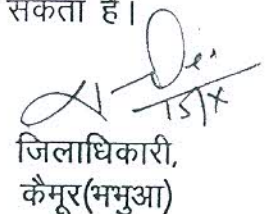 सकता है।
15/x
जिलाधिकारी,
कैमूर(भभुआ)